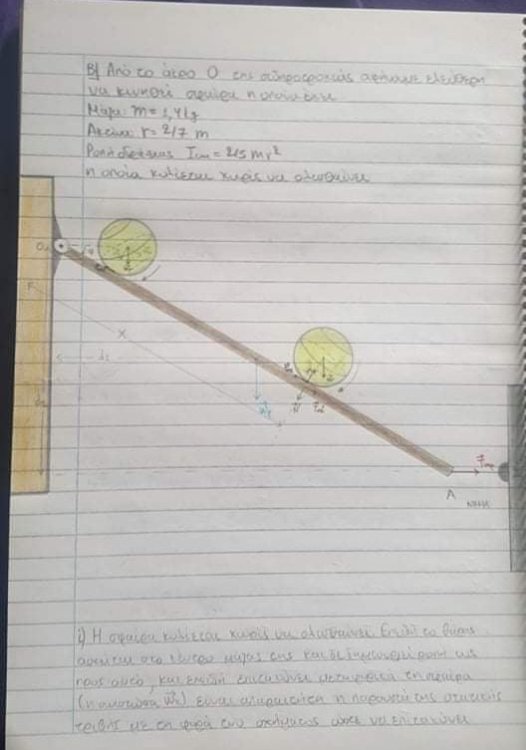 Β) Από το άκρο Ο της αφήνουμε ελεύθερη
να κινηθεί σφαίρα η οποία έχει
Μάζα: m = 1,4 kg
Ακτίνα: r = 2/7 m
Ροπή αδράνειας Icm = 2/5 mr²
η οποία κυλίεται χωρίς να ολισθαίνει
O
F
x
d₁
N
A
i) Η σφαίρα κυλίεται χωρίς να ολισθαίνει. Επειδή το βάρος
ασκείται στο κέντρο μάζας της και δε δημιουργεί ροπή ως
προς αυτό, και επειδή επιταχύνει μεταφορικά τη σφαίρα
(η συνιστώσα ) είναι απαραίτητη η παρουσία της στατικής
τριβής με τη φορά του σχήματος ώστε να επιταχύνει